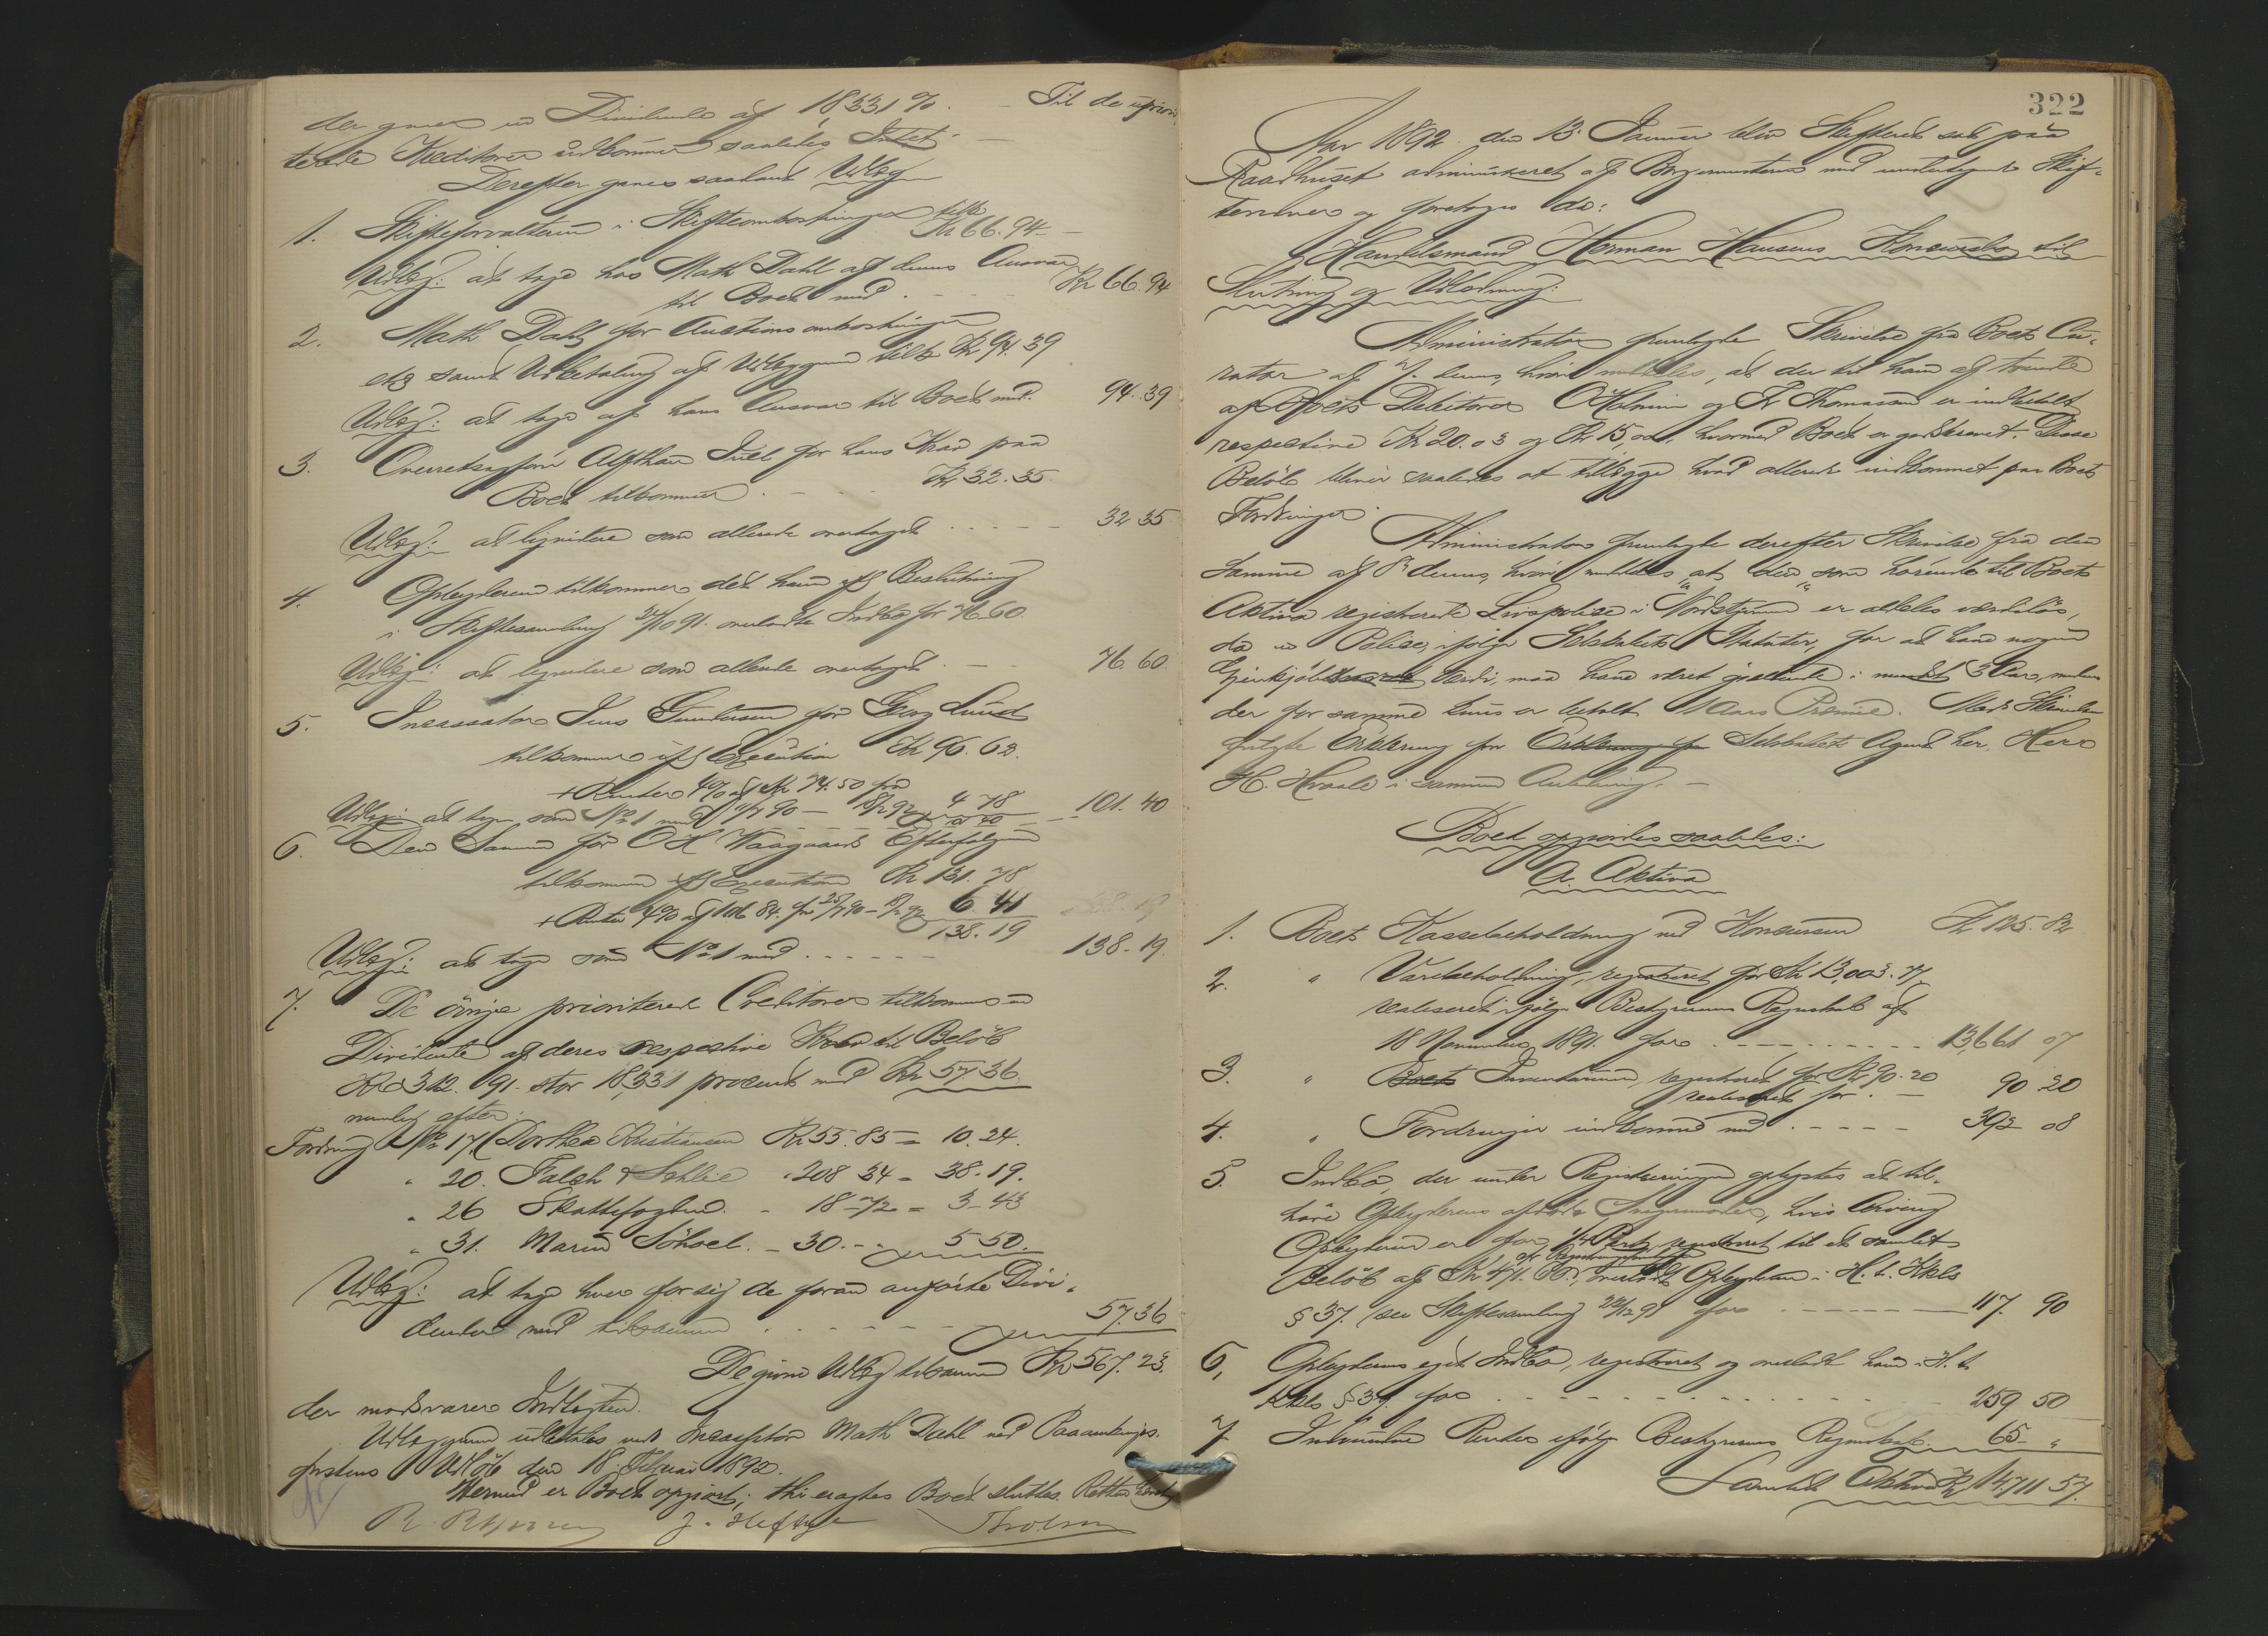 der giver en Dividende af 18,331 %. – Til de upriori-
terede Kreditorer udkommer saaledes Intet. –
Derefter gives saadant Udlæg
1. Skifteforvalteren i Skifteomkostninger tilk. Kr 66.94 –
Udlæg: at tage hos Math Dahl af dennes Ansvar
til Boet med . – – – Kr 66.94
2. Math Dahl for Auctionsomkostninger
etc samt Udbetaling af Udlæggene tilk. Kr 94.39
Udlæg: at tage af hans Ansvar til Boet med. 94.39
3. Overretssagfører Alfthan Juell for hans Krav paa
Boet tilkommer . – – – Kr 32.35.
Udlæg: at liqvidere som allerede overtaget . . . . . 32 35
4. Opbyderen tilkommer det ham ifl Beslutning
i Skiftesamling 24/10 91. overladte Indbo for 76.60
Udlæg: at liqvidere som allerede overtaget . – 76.60.
5. Incassator Jens Gundersen for Georg Lund
tilkommer ifl Execution Kr 96.62.
+ Renter 4% af Kr 74.50 fra
Udlæg: at tage som No 1 med 4 78 101.40
6. Den Samme for O H Waagaards Efterfølger
tilkommer ifl Execution Kr 131.78
+ Renter 4% af 106 84. fra 6 41
138.19
Udlæg: at tage som No 1 med . . . . . . 138.19.
7. De øvrige prioriterede Creditorer tilkommer en
Dividende af deres respective Krav til Beløb
Kr 312.91. stor 18,331 procent med Kr 57.36
nemlig efter:
Fordring No 17. (Dorthea Kristiansen Kr 55.85 = 10.24.
" 20. Falch & Schlie " 208 34 = 38.19.
" 26 Skattefogden. " 18-72 = 3-43
" 31. Maren Sohoel. – 30. – 5 50.
Udlæg: at tage hver for sig de foran anførte Divi-
dender med tilsammen . . . . . . 57.36
De givne Udlæg tilsammen Kr 567.23.
der modsvarer Indtægten.
Udlæggene udbetales ved Inkassator Math Dahl ved Paaankings-
fristens Udløb den 18. Februar 1892.
Hermed er Boet opgjort; thi eragtes Boet sluttet. Retten hævet
J. Heftye
322
Aar 1892. den 13. Januar blev Skifteret sat paa
Raadhuset administreret af Borgermesteren med undertegnede Skif-
teskriver og foretoges da:
Handelsmand Herman Hansens Konkursbo til
Slutning og Udlodning:
Administrator fremlagde Skrivelse fra Boets Cu-
rator af 7. dennes, hvori meddeles, at der til ham af tvende
af Boets Debitorer O Holmen og Fr Thomassen er indbetalt
respective Kr 20.03 og Kr 15,00, hvormed Boet er godskrevet. Disse
Beløb bliver saaledes at tillægge hvad allerede indkommet paa Boets
Fordringer.
Administrator fremlagde derefter Skrivelse fra den
samme af 8. dennes, hvori meddeles, at den som hørende til Boets
Aktiva registrerede Livspolice i "Nordstjernen" er aldeles værdiløs,
da en Police, ifølge Selskabets Statuter, for at have nogen
Gjenkjøbs Værdi, maa have været gjældende i mindst 3 Aar, medens
der for samme kun er betalt 1 Aars Præmie. Med Skrivelsen
fulgte Erklæring fra Selskabets Agent her, Herr
H. Hvaale i samme Anledning. –
Boet opgjordes saaledes:
A. Aktiva
1. Boets Kassebeholdning ved Konkursen Kr 125.82
2. " Varebeholdning, registreret for Kr 13,003.71
realiseret ifølge Bestyrerens Regnskab af
18 November 1891. for . – – – – – 13,661 07
3. " Boets Inventarium, registreret for Kr 90.20
realiseret for . – 90 20
4. " Fordringer indkommet med . – – – – 392 08
5. Indbo, der under Registreringen oplystes at til-
høre Opbyderens afdøde Svigermoder, hvis Arving
Opbyderen er for 1/4 Part, registreret til et samlet
Beløb af Kr 471.60., overladt Opbyderen i H. t. Kkls
§ 37. (se Skiftesamling 22/12 91 for – – – – – 117. 90
6, Opbyderens eget Indbo, registreret og overladt ham i H. t.
Kkls § 37. for – – – – – 259 50
7. Indvundne Renter ifølge Bestyrerens Regnskab. 65 – "
Samlet Aktiva Kr 14,711 57.